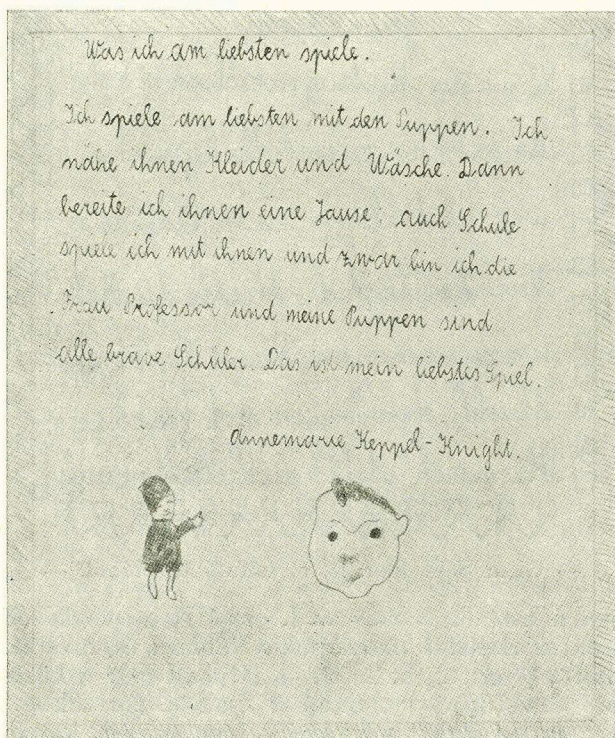 Was ich am liebsten spiele.
Ich spiele am liebsten mit den Puppen. Ich
nähe ihnen Kleider und Wäsche. Dann
bereite ich ihnen eine Jause; auch Schule
spiele ich mit ihnen und zwar bin ich die
Frau Professor und meine Puppen sind
alle brave Schüler. Das ist mein liebstes Spiel.
Annemarie Keppel-Knight.